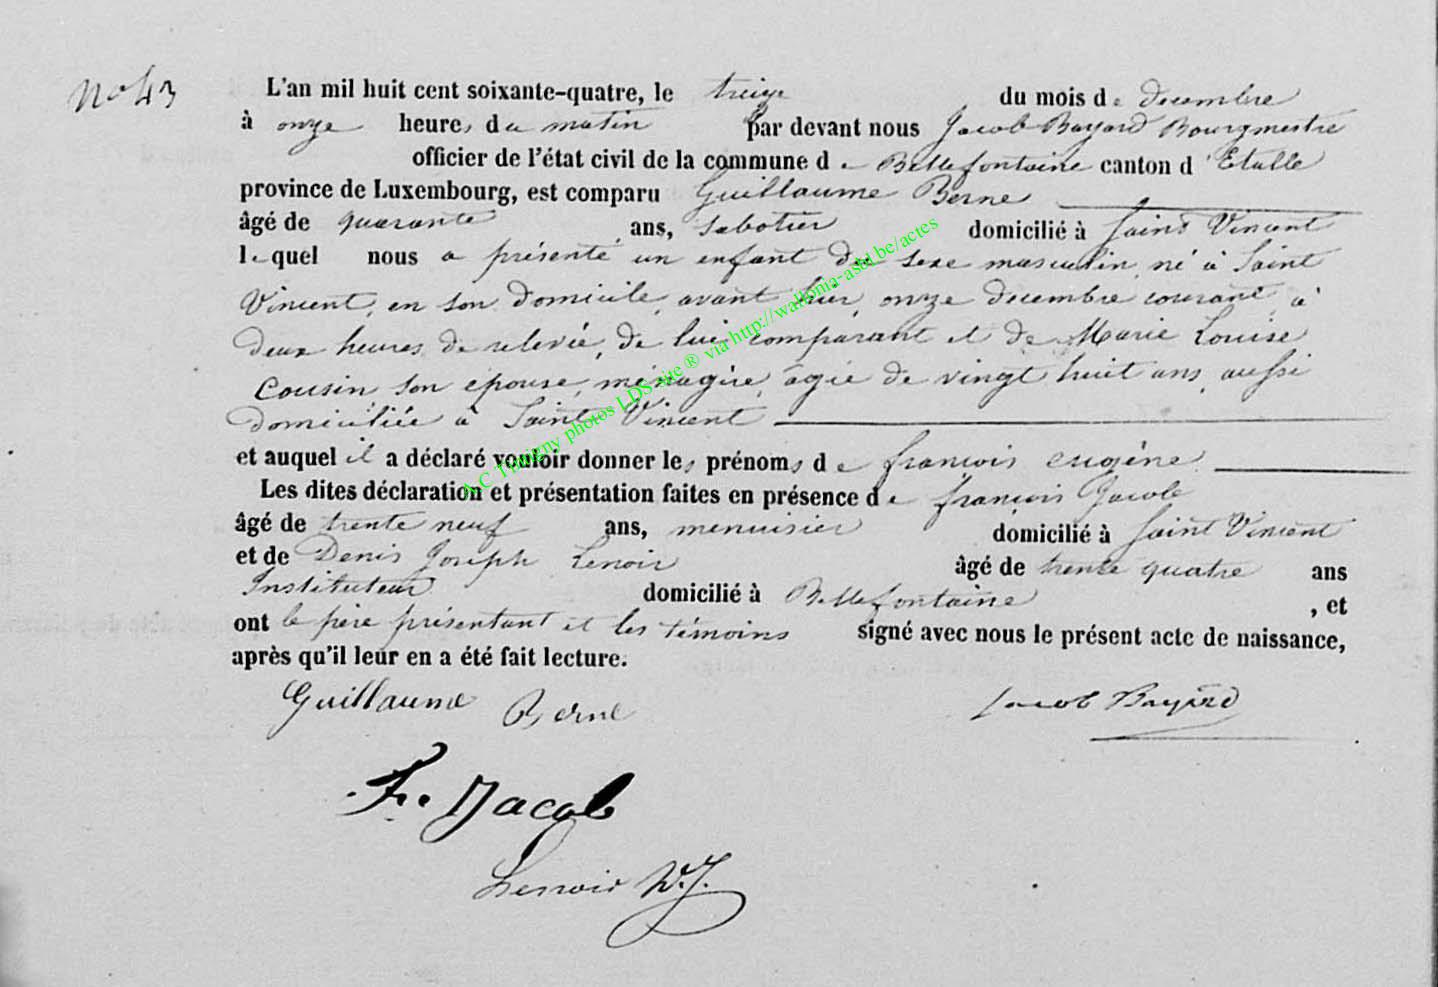 No 43
L'an mil huit cent soixante-quatre, le treize du mois de decembre
à onze heures du matin par devant nous Jacob Bayard Bourgmestre
officier de l'état civil de la commune de Bellefontaine canton d'Etalle
province de Luxembourg, est comparu Guillaume Berne
âgé de quarante ans, sabotier domicilié à Saint Vincent
lequel nous a présenté un enfant du sexe masculin, né à Saint
Vincent, en son domicile, avant hier, onze decembre courant, à
deux heures de relevée, de lui comparant et de Marie Louise
Cousin, son epouse, ménagère, agée de vingt huit ans, aussi
domiciliée à Saint Vincent
et auquel il a déclaré vouloir donner les prénoms de françois eugène
Les dites déclaration et présentation faites en présence de françois Jacob
âgé de trente neuf ans, menuisier domicilié à Saint Vincent
et de Denis Joseph Lenoir âgé de trente quatre ans
Instituteur domicilié à Bellefontaine , et
ont le père présentant et les témoins signé avec nous le présent acte de naissance,
après qu'il leur en a été fait lecture.
Guillaume Berne Jacob Bayard
Fr. Jacob
Lenoir D.J.
A.C Tintigny photos LDS site ® via http://wallonia-asbl.be/actes